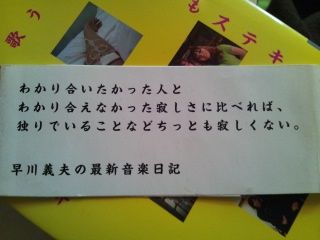 歌う
もステキ
わかり合いたかった人と
わかり合えなかった寂しさに比べれば、
独りでいることなどちっとも寂しくない。
早川義夫の最新音楽日記